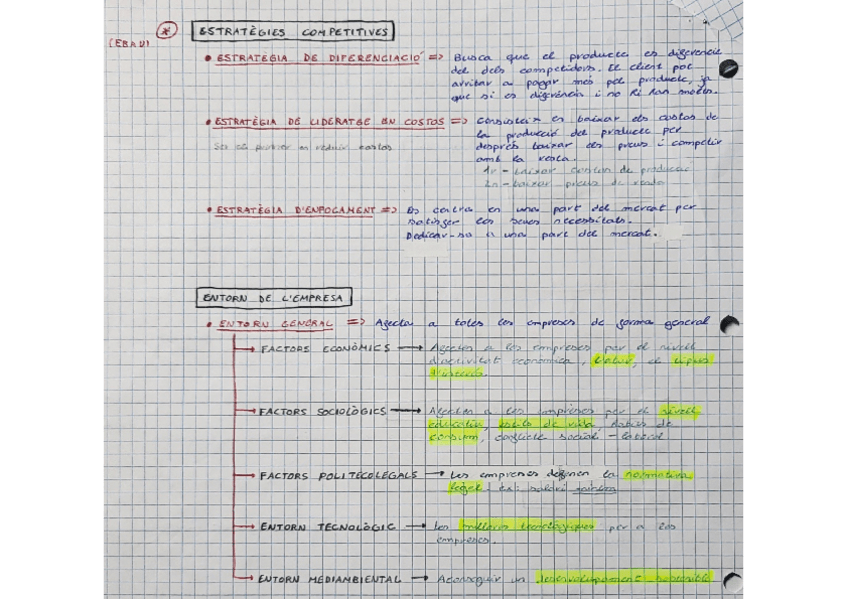 * ESTRATÈGIES COMPETITIVES
(EBAU)
• ESTRATEGIA DE DIFERENCIACIÓ => Busca que el producte es diferencie
del dels competidors. El client pot
arribar a pagar més pel producte, ja
que si es diferència i no hi han molts.
• ESTRATÈGIA DE LIDERATGE EN COSTOS => Consisteix en baixar els costos de
la producció del producte per
després baixar els preus i competir
amb la resta.
reduir costos
1r - baixar costos de producció
2n - baixar preus de venda
• ESTRATÈGIA D'ENFOCAMENT => Es centra en una part del mercat per
satisfer les seues necessitats.
Dedicar-se a una part del mercat.
ENTORN DE L'EMPRESA
• ENTORN GENERAL => Afecta a totes les empreses de forma general
FACTORS ECONÒMICS → Afecten a les empreses per el nivell
d'activitat econòmica, l'atur, el tipus
d'interés.
FACTORS SOCIOLÒGICS → Afecten a les empreses per el nivell
educatiu, estils de vida, de
consum, conflicte social-laboral
FACTORS POLITECOLEGALS → Les empreses la normativa
legal ex: salari mínim
ENTORN TECNOLÒGIC → Les millores tecnològiques per a les
empreses.
ENTORN MEDIAMBIENTAL → Aconseguir un desenvolupament sostenible